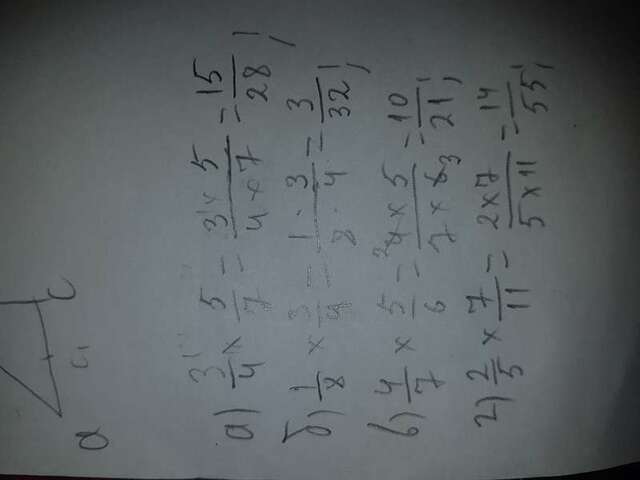 a
C
C1
а) 3/4 × 5/7 = 3 × 5 / 4 × 7 = 15/28;
б) 1/8 × 3/4 = 1 · 3 / 8 · 4 = 3/32;
в) 4/7 × 5/6 = 2 4 × 5 / 7 × 6 3 = 10/21;
г) 2/5 × 7/11 = 2 × 7 / 5 × 11 = 14/55;